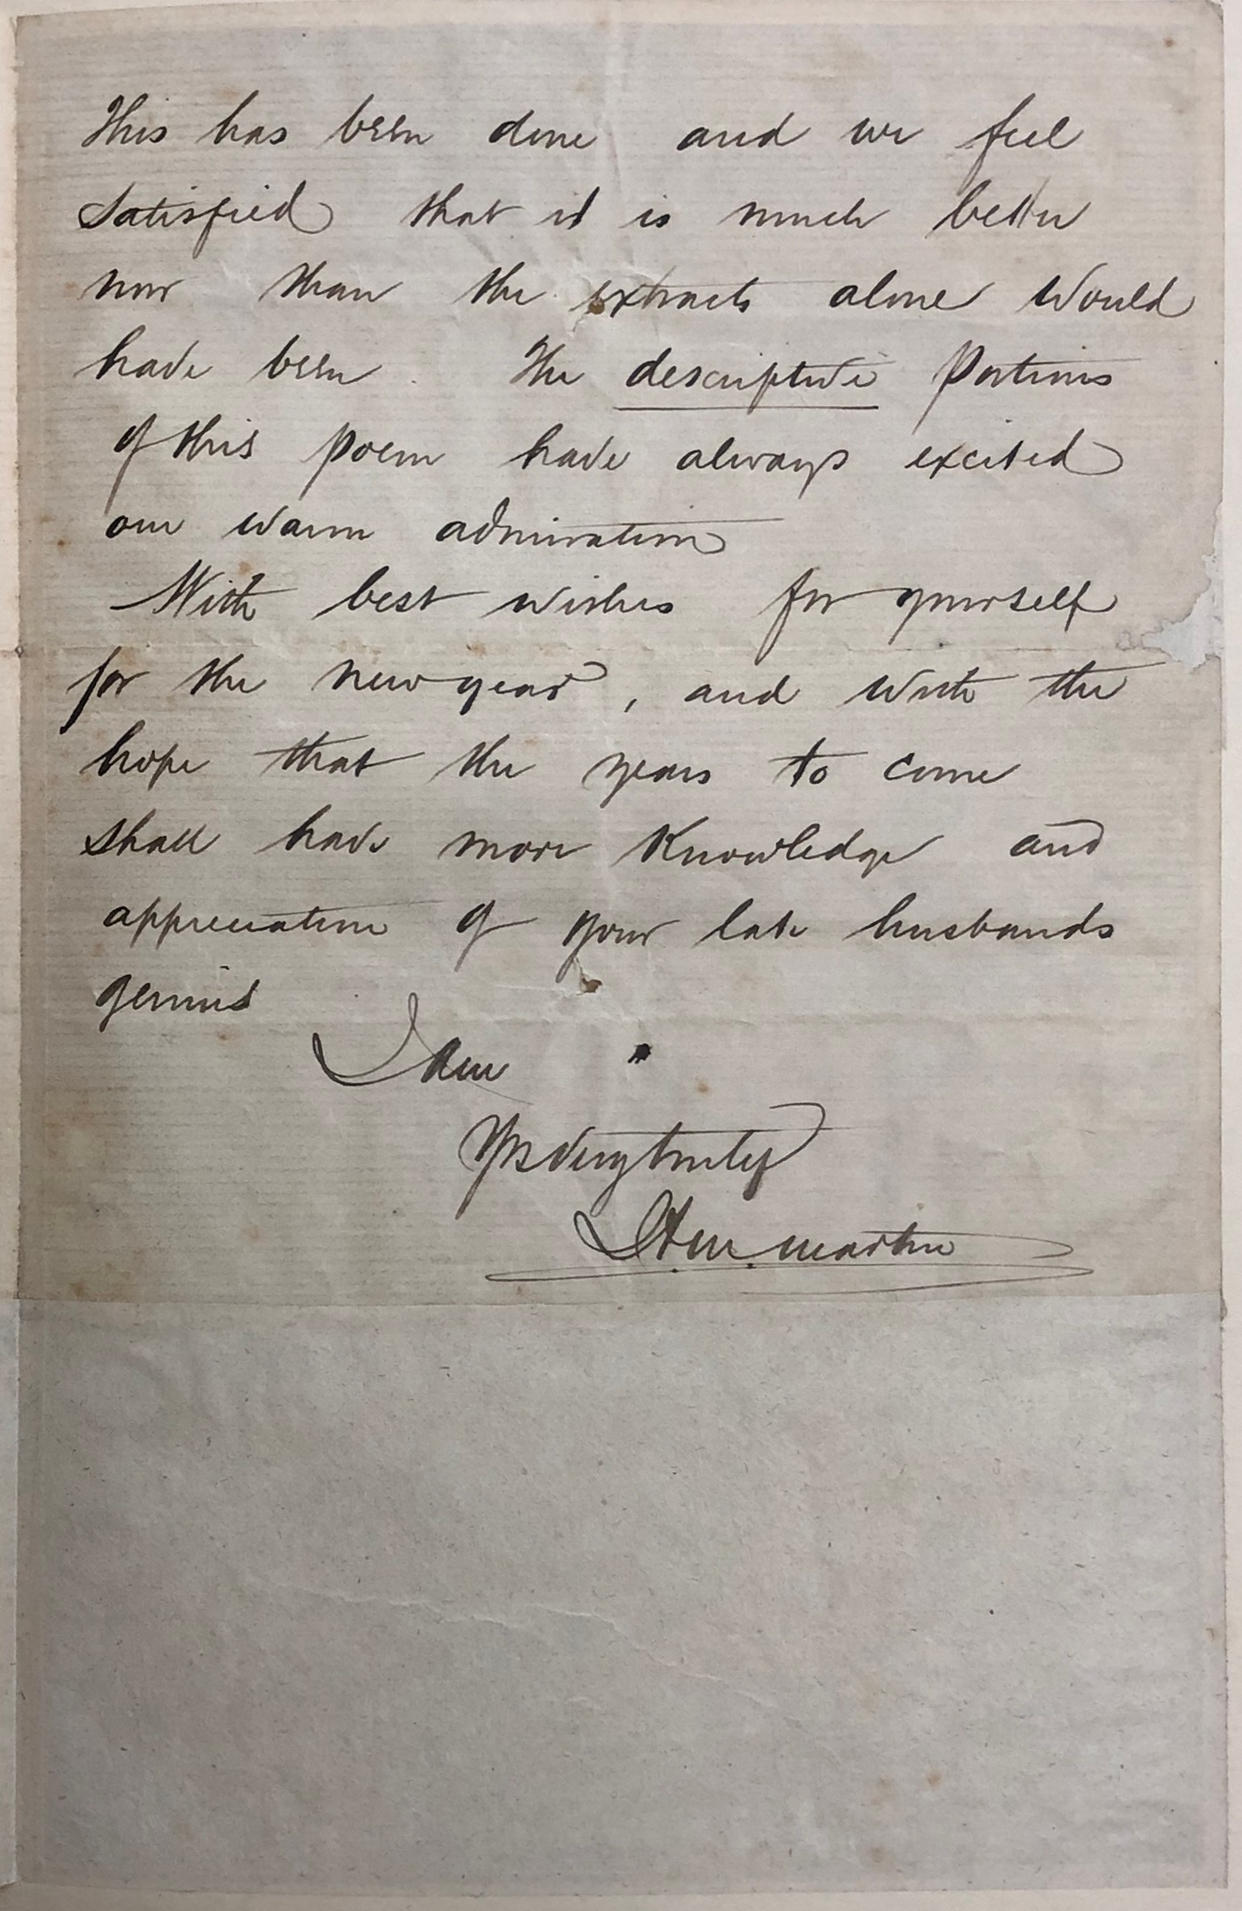 This has been done and we feel
satisfied that it is much better
now than the extracts alone would
have been. The descriptive portions
of this poem have always excited
our warm admiration
With best wishes for yourself
for the new year, and with the
hope that the years to come
shall have more knowledge and
appreciation of your late husbands
genius
I am
Yrs very truly
Martin